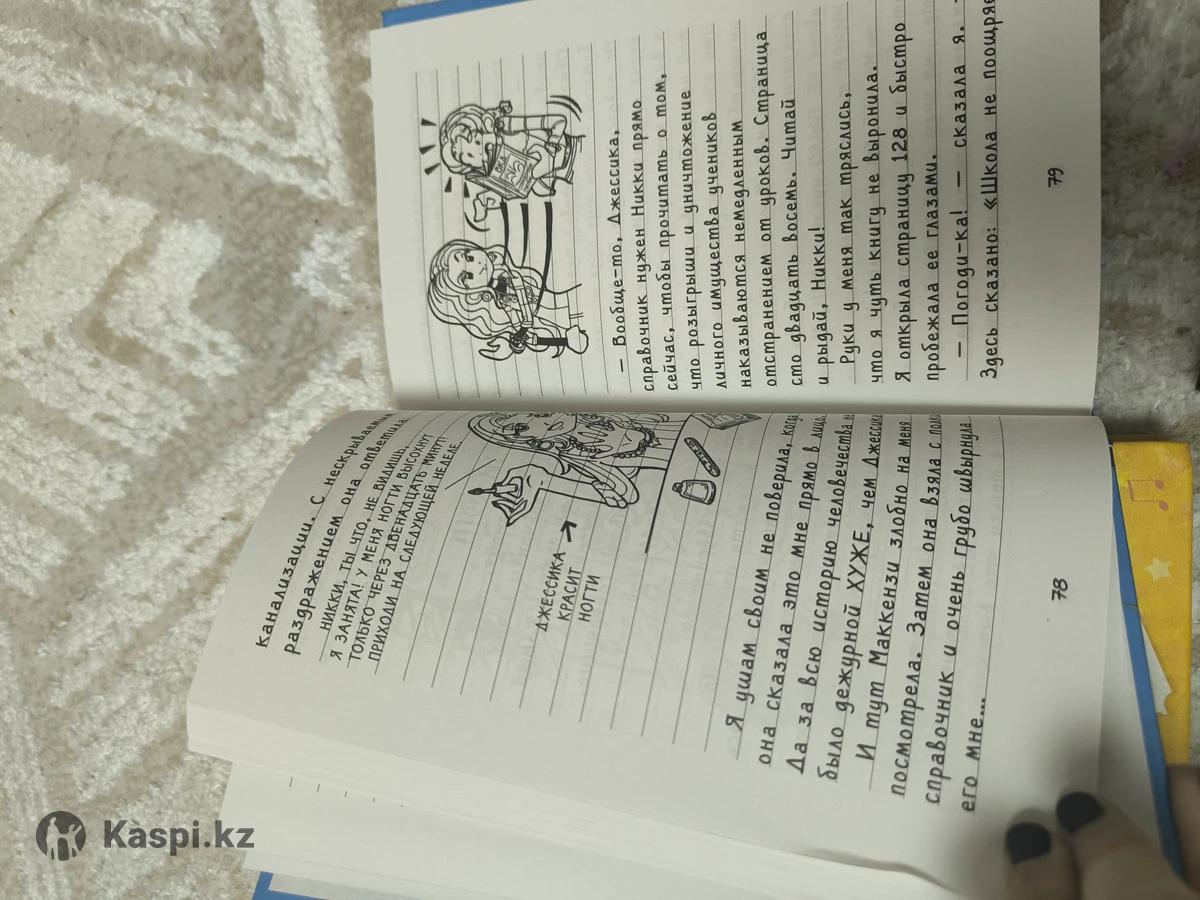 канализации. С нескрываемым
раздражением она ответила:
НИККИ, ТЫ ЧТО, НЕ ВИДИШЬ,
Я ЗАНЯТА! У МЕНЯ НОГТИ ВЫСОХНУТ
ТОЛЬКО ЧЕРЕЗ ДВЕНАДЦАТЬ МИНУТ!
ПРИХОДИ НА СЛЕДУЮЩЕЙ НЕДЕЛЕ...
ДЖЕССИКА
КРАСИТ
НОГТИ
Я ушам своим не поверила, когда
она сказала это мне прямо в лицо.
Да за всю историю человечества не
было дежурной ХУЖЕ, чем Джессика
И тут Маккензи злобно на меня
посмотрела. Затем она взяла с полки
справочник и очень грубо швырнула
его мне...
78
— Вообще-то, Джессика,
справочник нужен Никки прямо
сейчас, чтобы прочитать о том,
что розыгрыши и уничтожение
личного имущества учеников
наказываются немедленным
отстранением от уроков. Страница
сто двадцать восемь. Читай
и рыдай, Никки!
Руки у меня так тряслись,
что я чуть книгу не выронила.
Я открыла страницу 128 и быстро
пробежала ее глазами.
— Погоди-ка! — сказала я. —
Здесь сказано: «Школа не поощряе
79
Kaspi.kz